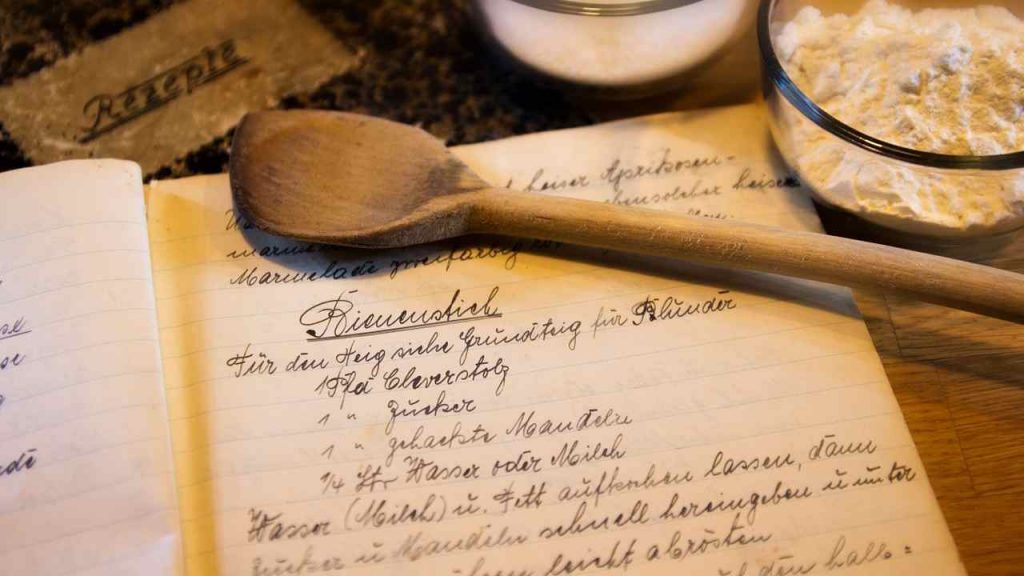 Rezepte
heiser Aprikosen-
ebensolcher heiser
Marmelade zweifarbig
Bienenstich
Für den Teig siehe Grundteig für Plunder
1 Pfd Cleverstolz
1 " Zucker
1 " gehackte Mandeln
1/4 Ltr Wasser oder Milch
Wasser (Milch) u. Fett aufkochen lassen, dann
Zucker u Mandeln schnell hereingeben u unter
leicht abrösten
den halb=